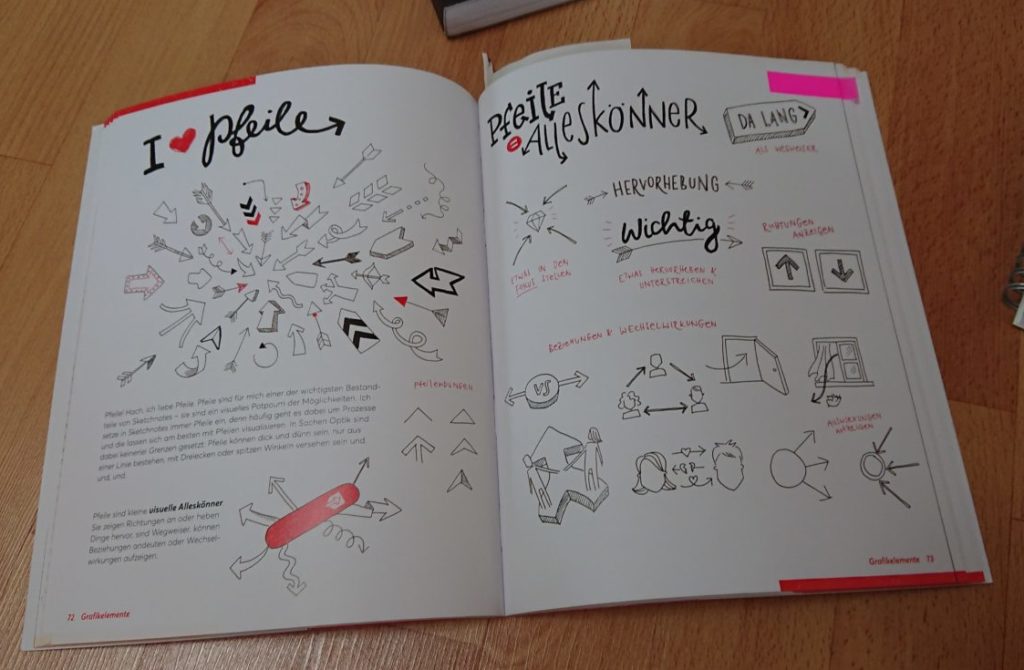 I ❤ Pfeile
Pfeile! Hach, ich liebe Pfeile. Pfeile sind für mich einer der wichtigsten Bestand-
teile von Sketchnotes – sie sind ein visuelles Potpourri der Möglichkeiten. Ich
setze in Sketchnotes immer Pfeile ein, denn häufig geht es dabei um Prozesse
und die lassen sich am besten mit Pfeilen visualisieren. In Sachen Optik sind
dabei keinerlei Grenzen gesetzt: Pfeile können dick und dünn sein, nur aus
einer Linie bestehen, mit Dreiecken oder spitzen Winkeln versehen sein und
und, und.
PFEILENDUNGEN
Pfeile sind kleine visuelle Alleskönner.
Sie zeigen Richtungen an oder heben
Dinge hervor, sind Wegweiser, können
Beziehungen andeuten oder Wechsel-
wirkungen aufzeigen.
72 Grafikelemente
PfEiLE
= AllesKÖNNER
DA LANG
ALS WEGWEISER
HERVORHEBUNG
Wichtig
ETWAS IN DEN
FOKUS STELLEN
ETWAS HERVORHEBEN &
UNTERSTREICHEN
RICHTUNGEN
ANZEIGEN
BEZIEHUNGEN & WECHSELWIRKUNGEN
VS
AUSWIRKUNGEN
AUFZEIGEN
Grafikelemente 73